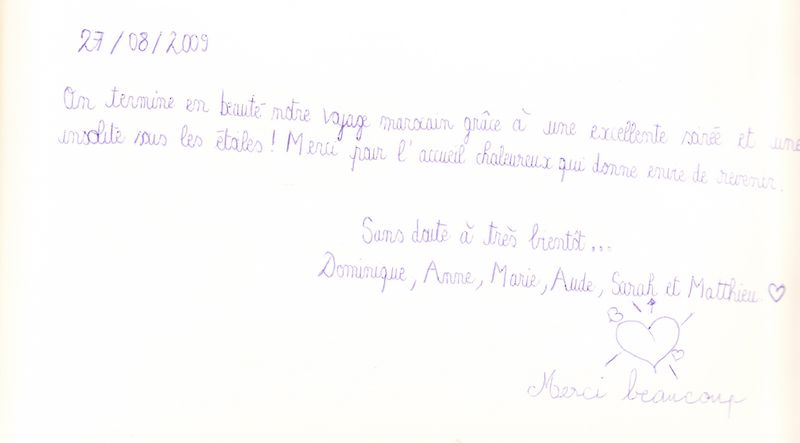 27/08/2009
On termine en beauté notre voyage marocain grâce à une excellente soirée et une
insolite sous les étoiles ! Merci pour l'accueil chaleureux qui donne envie de revenir.
Sans doute à très bientôt...
Dominique, Anne, Marie, Aude, Sarah et Matthieu ♡
Merci beaucoup